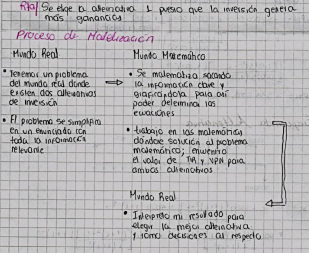 Rta/ Se elige la alternativa 1 puesto que la inversión genera
más ganancias
Proceso de Matematización
Mundo Real
• Tenemos un problema
del mundo real donde
existen dos alternativas
de inversión
• El problema se simplifica
en un enunciado con
toda la información
relevante
Mundo Matemático
• Se matematiza sacando
la información clave y
graficandola para así
poder determinar las
ecuaciones
• trabajo en las matemáticas
dándole solución al problema
matemático; encuentro
el valor de TIR y VPN para
ambas alternativas
Mundo Real
• Interpreto mi resultado para
elegir la mejor alternativa
y tomo decisiones al respecto